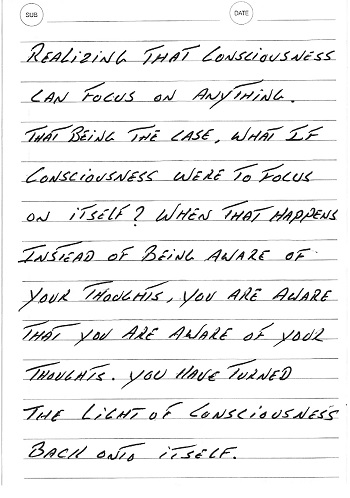 SUB DATE
REALIZING THAT CONSCIOUSNESS
CAN FOCUS ON ANYTHING.
THAT BEING THE CASE, WHAT IF
CONSCIOUSNESS WERE TO FOCUS
ON ITSELF? WHEN THAT HAPPENS
INSTEAD OF BEING AWARE OF
YOUR THOUGHTS, YOU ARE AWARE
THAT YOU ARE AWARE OF YOUR
THOUGHTS. YOU HAVE TURNED
THE LIGHT OF CONSCIOUSNESS
BACK ONTO ITSELF.